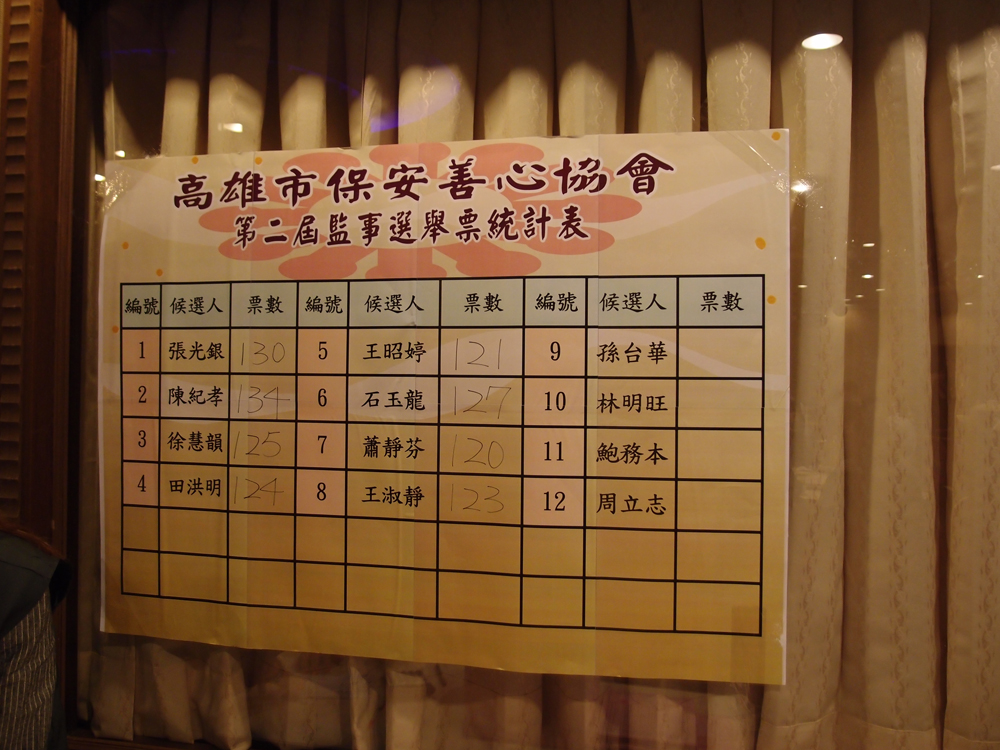 高雄市保安善心協會
第二屆監事選舉票統計表
編號 候選人 票數 編號 候選人 票數 編號 候選人 票數
1 張光銀 130 5 王昭婷 121 9 孫台華
2 陳紀孝 134 6 石玉龍 127 10 林明旺
3 徐慧韻 125 7 蕭靜芬 120 11 鮑務本
4 田洪明 124 8 王淑靜 123 12 周立志